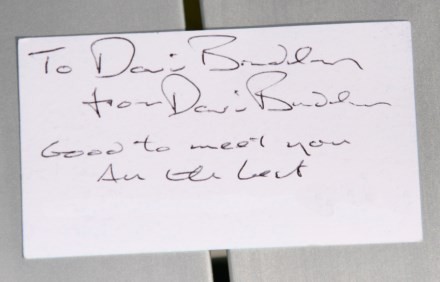 To David Bradley
from David Bradley
Good to meet you
All the best